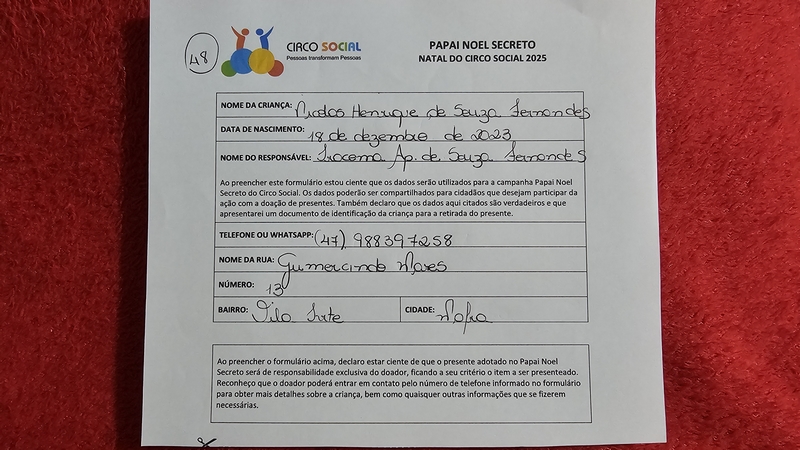 48
CIRCO SOCIAL
Pessoas transformam Pessoas
PAPAI NOEL SECRETO
NATAL DO CIRCO SOCIAL 2025
NOME DA CRIANÇA: Nicolas Henrique de Souza Fernandes
DATA DE NASCIMENTO: 18 de dezembro de 2023
NOME DO RESPONSÁVEL: Iracema Ap. de Souza Fernandes
Ao preencher este formulário estou ciente que os dados serão utilizados para a campanha Papai Noel
Secreto do Circo Social. Os dados poderão ser compartilhados para cidadãos que desejam participar da
ação com a doação de presentes. Também declaro que os dados aqui citados são verdadeiros e que
apresentarei um documento de identificação da criança para a retirada do presente.
TELEFONE OU WHATSAPP: (47) 988397258
NOME DA RUA: Gumercindo
NÚMERO: 13
BAIRRO: Vila CIDADE: Mafra
Ao preencher o formulário acima, declaro estar ciente de que o presente adotado no Papai Noel
Secreto será de responsabilidade exclusiva do doador, ficando a seu critério o item a ser presenteado.
Reconheço que o doador poderá entrar em contato pelo número de telefone informado no formulário
para obter mais detalhes sobre a criança, bem como quaisquer outras informações que se fizerem
necessárias.